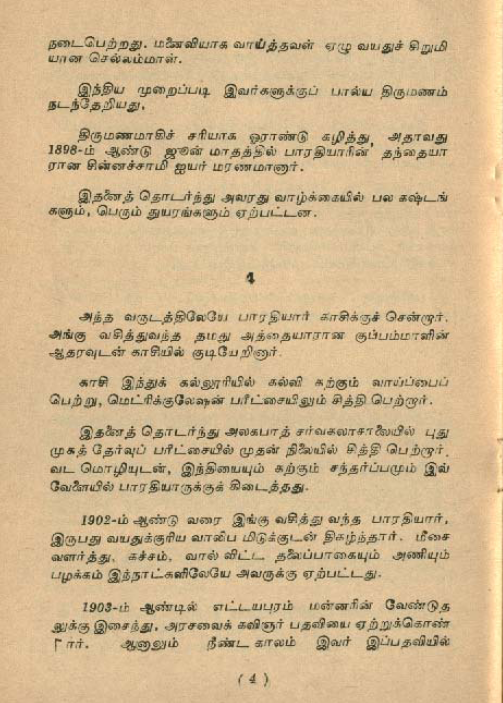 நடைபெற்றது. மனைவியாக வாய்த்தவள் ஏழு வயதுச் சிறுமி
யான செல்லம்மாள்.
இந்திய முறைப்படி இவர்களுக்குப் பால்ய திருமணம்
நடந்தேறியது.
திருமணமாகிச் சரியாக ஓராண்டு கழித்து, அதாவது
1898-ம் ஆண்டு ஜூன் மாதத்தில் பாரதியாரின் தந்தையா
ரான சின்னச்சாமி ஐயர் மரணமானார்.
இதனைத் தொடர்ந்து அவரது வாழ்க்கையில் பல கஷ்டங்
களும், பெரும் துயரங்களும் ஏற்பட்டன.
4
அந்த வருடத்திலேயே பாரதியார் காசிக்குச் சென்றார்.
அங்கு வசித்துவந்த தமது அத்தையாரான குப்பம்மாளின்
ஆதரவுடன் காசியில் குடியேறினார்.
காசி இந்துக் கல்லூரியில் கல்வி கற்கும் வாய்ப்பைப்
பெற்று, மெட்ரிக்குலேஷன் பரீட்சையிலும் சித்தி பெற்றார்.
இதனைத் தொடர்ந்து அலகபாத் சர்வகலாசாலையில் புது
முகத் தேர்வுப் பரீட்சையில் முதன் நிலையில் சித்தி பெற்றார்.
வட மொழியுடன், இந்தியையும் கற்கும் சந்தர்ப்பமும் இவ்
வேளையில் பாரதியாருக்குக் கிடைத்தது.
1902-ம் ஆண்டு வரை இங்கு வசித்து வந்த பாரதியார்,
இருபது வயதுக்குரிய வாலிப மிடுக்குடன் திகழ்ந்தார். மீசை
வளர்த்து, கச்சம், வால் விட்ட தலைப்பாகையும் அணியும்
பழக்கம் இந்நாட்களிலேயே அவருக்கு ஏற்பட்டது.
1903-ம் ஆண்டில் எட்டயபுரம் மன்னரின் வேண்டுத
லுக்கு இசைந்து, அரசவைக் கவிஞர் பதவியை ஏற்றுக்கொண்
டார். ஆனாலும் நீண்ட காலம் இவர் இப்பதவியில்
( 4 )